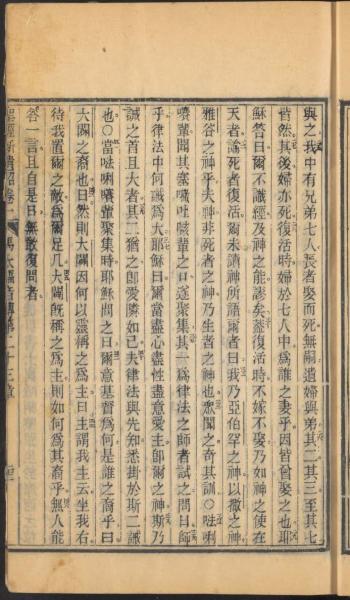 與之我中有兄弟七人長者娶而死無嗣遺婦與弟其二其三至其七
皆然其後婦亦死復活時婦於七人中為誰之妻乎因皆曾娶之也耶
穌答曰爾不識經及神之能謬矣蓋復活時不嫁不娶乃如神之使在
天者論死者復活爾未讀神所語爾者曰我乃亞伯罕之神以撒之神
雅谷之神乎夫神非死者之神乃生者之神也眾聞之奇其訓○𠵽唎
嚽輩聞其塞嚽吐嘅輩之口遂聚集其一為律法之師者試之問曰師
乎律法中何誡為大耶穌曰爾當盡心盡性盡意愛主即爾之神斯乃
誡之首且大者其二猶之即愛隣如己夫律法與先知悉掛於斯二誡
也○當𠵽唎嚽輩聚集時耶穌問之曰爾意基督為何是誰之裔乎曰
大闢之裔也曰然則大闢因何以靈稱之為主曰主謂我主云坐我右
待我置爾之敵為爾足几大闢既稱之為主則如何為其裔乎無人能
答一言且自是日無敢復問者
聖經新遺詔卷一 馬太福音傳第二十三章